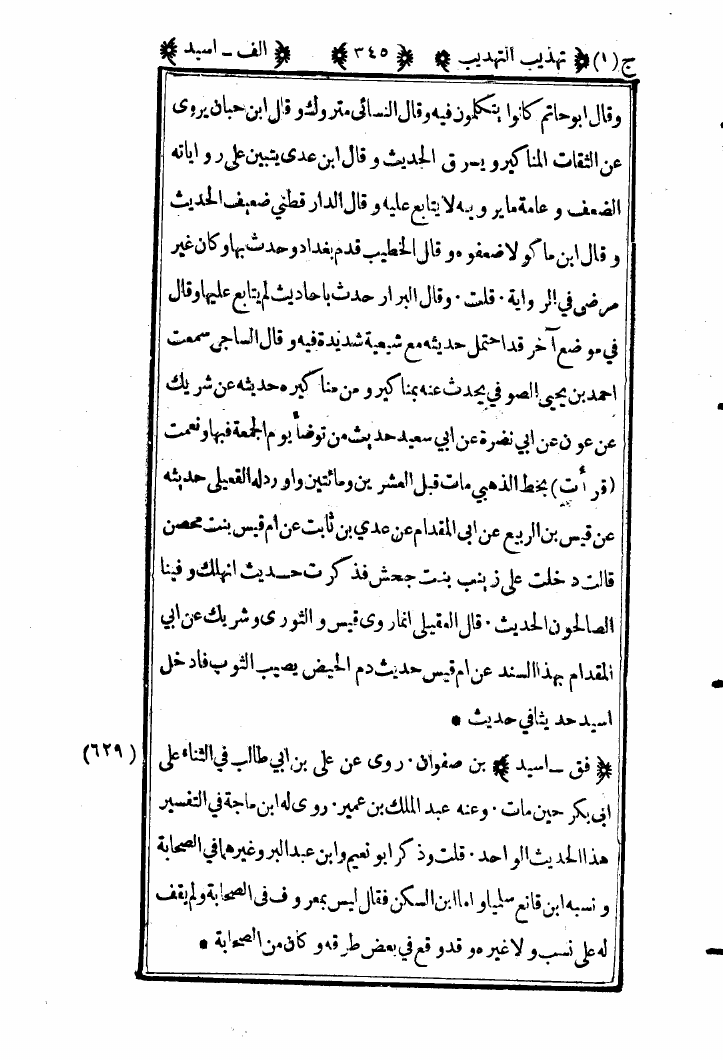 ج(١) ﴿ تهذيب التهذيب ﴾ ﴿ ٣٤٥ ﴾ ﴿ الف ـ اسيد ﴾
وقال ابوحاتم كانوا يتكلمون فيه وقال النسائى متروك وقال ابن حبان يروى
عن الثقات المناكير و يسرق الحديث وقال ابن عدى يتبين على رواياته
الضعف و عامة ما يرويه لا يتابع عليه وقال الدارقطني ضعيف الحديث
وقال ابن ماكولا ضعفوه وقال الخطيب قدم بغداد وحدث بها وكان غير
مرضى في الرواية ٠ قلت ٠ وقال البزار حدث باحاديث لم يتابع عليها وقال
في موضع آخر قد احتمل حديثه مع شيعية شديدة فيه وقال الساجى سمعت
احمد بن يحيى الصوفي يحدث عنه بمناكير و من مناكيره حديثه عن شريك
عن عوف عن ابي نضرة عن ابي سعيد حديث من توضأ يوم الجمعة فبها ونعمت
(قرأت) بخط الذهبي مات قبل العشرين ومائتين واورد له العقيلى حديثه
عن قيس بن الربيع عن ابى المقدام عن عدي بن ثابت عن ام قيس بنت محصن
قالت دخلت على زينب بنت جحش فذكرت حديث انهلك وفينا
الصالحون الحديث ٠ قال العقيلى انما روى قيس والثورى وشريك عن ابي
المقدام بهذا السند عن ام قيس حديث دم الحيض يصيب الثوب فادخل
اسيد حديثا في حديث *
﴿ فق ـ اسيد ﴾ بن صفوان ٠ روى عن على بن ابي طالب في الثناء على (٦٢٩)
ابى بكر حين مات ٠ وعنه عبد الملك بن عمير ٠ روى له ابن ماجة في التفسير
هذا الحديث الواحد ٠ قلت وذكر ابو نعيم وابن عبد البر وغيرهما في الصحابة
ونسبه ابن قانع سلميا واما ابن السكن فقال ليس بمعروف فى الصحابة ولم يقف
له على نسب ولا غيره وقد وقع في بعض طرقه وكان من الصحابة *